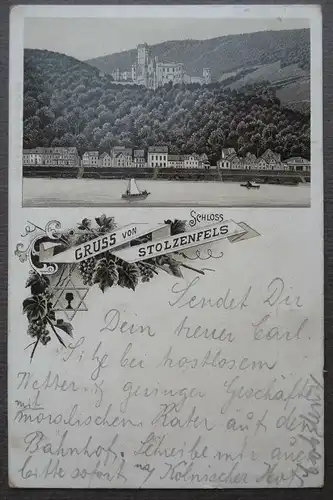 GRUSS VON
SCHLOSS
STOLZENFELS
Sendet Dir
Dein treuer Carl.
Sitze bei trostlosem
Wetter & geringer Geschäfte
mit
moralischen Kater auf dem
Bahnhof. Schreibe mir auch
bitte sofort n/ Kölnischer Hof
Koblenz